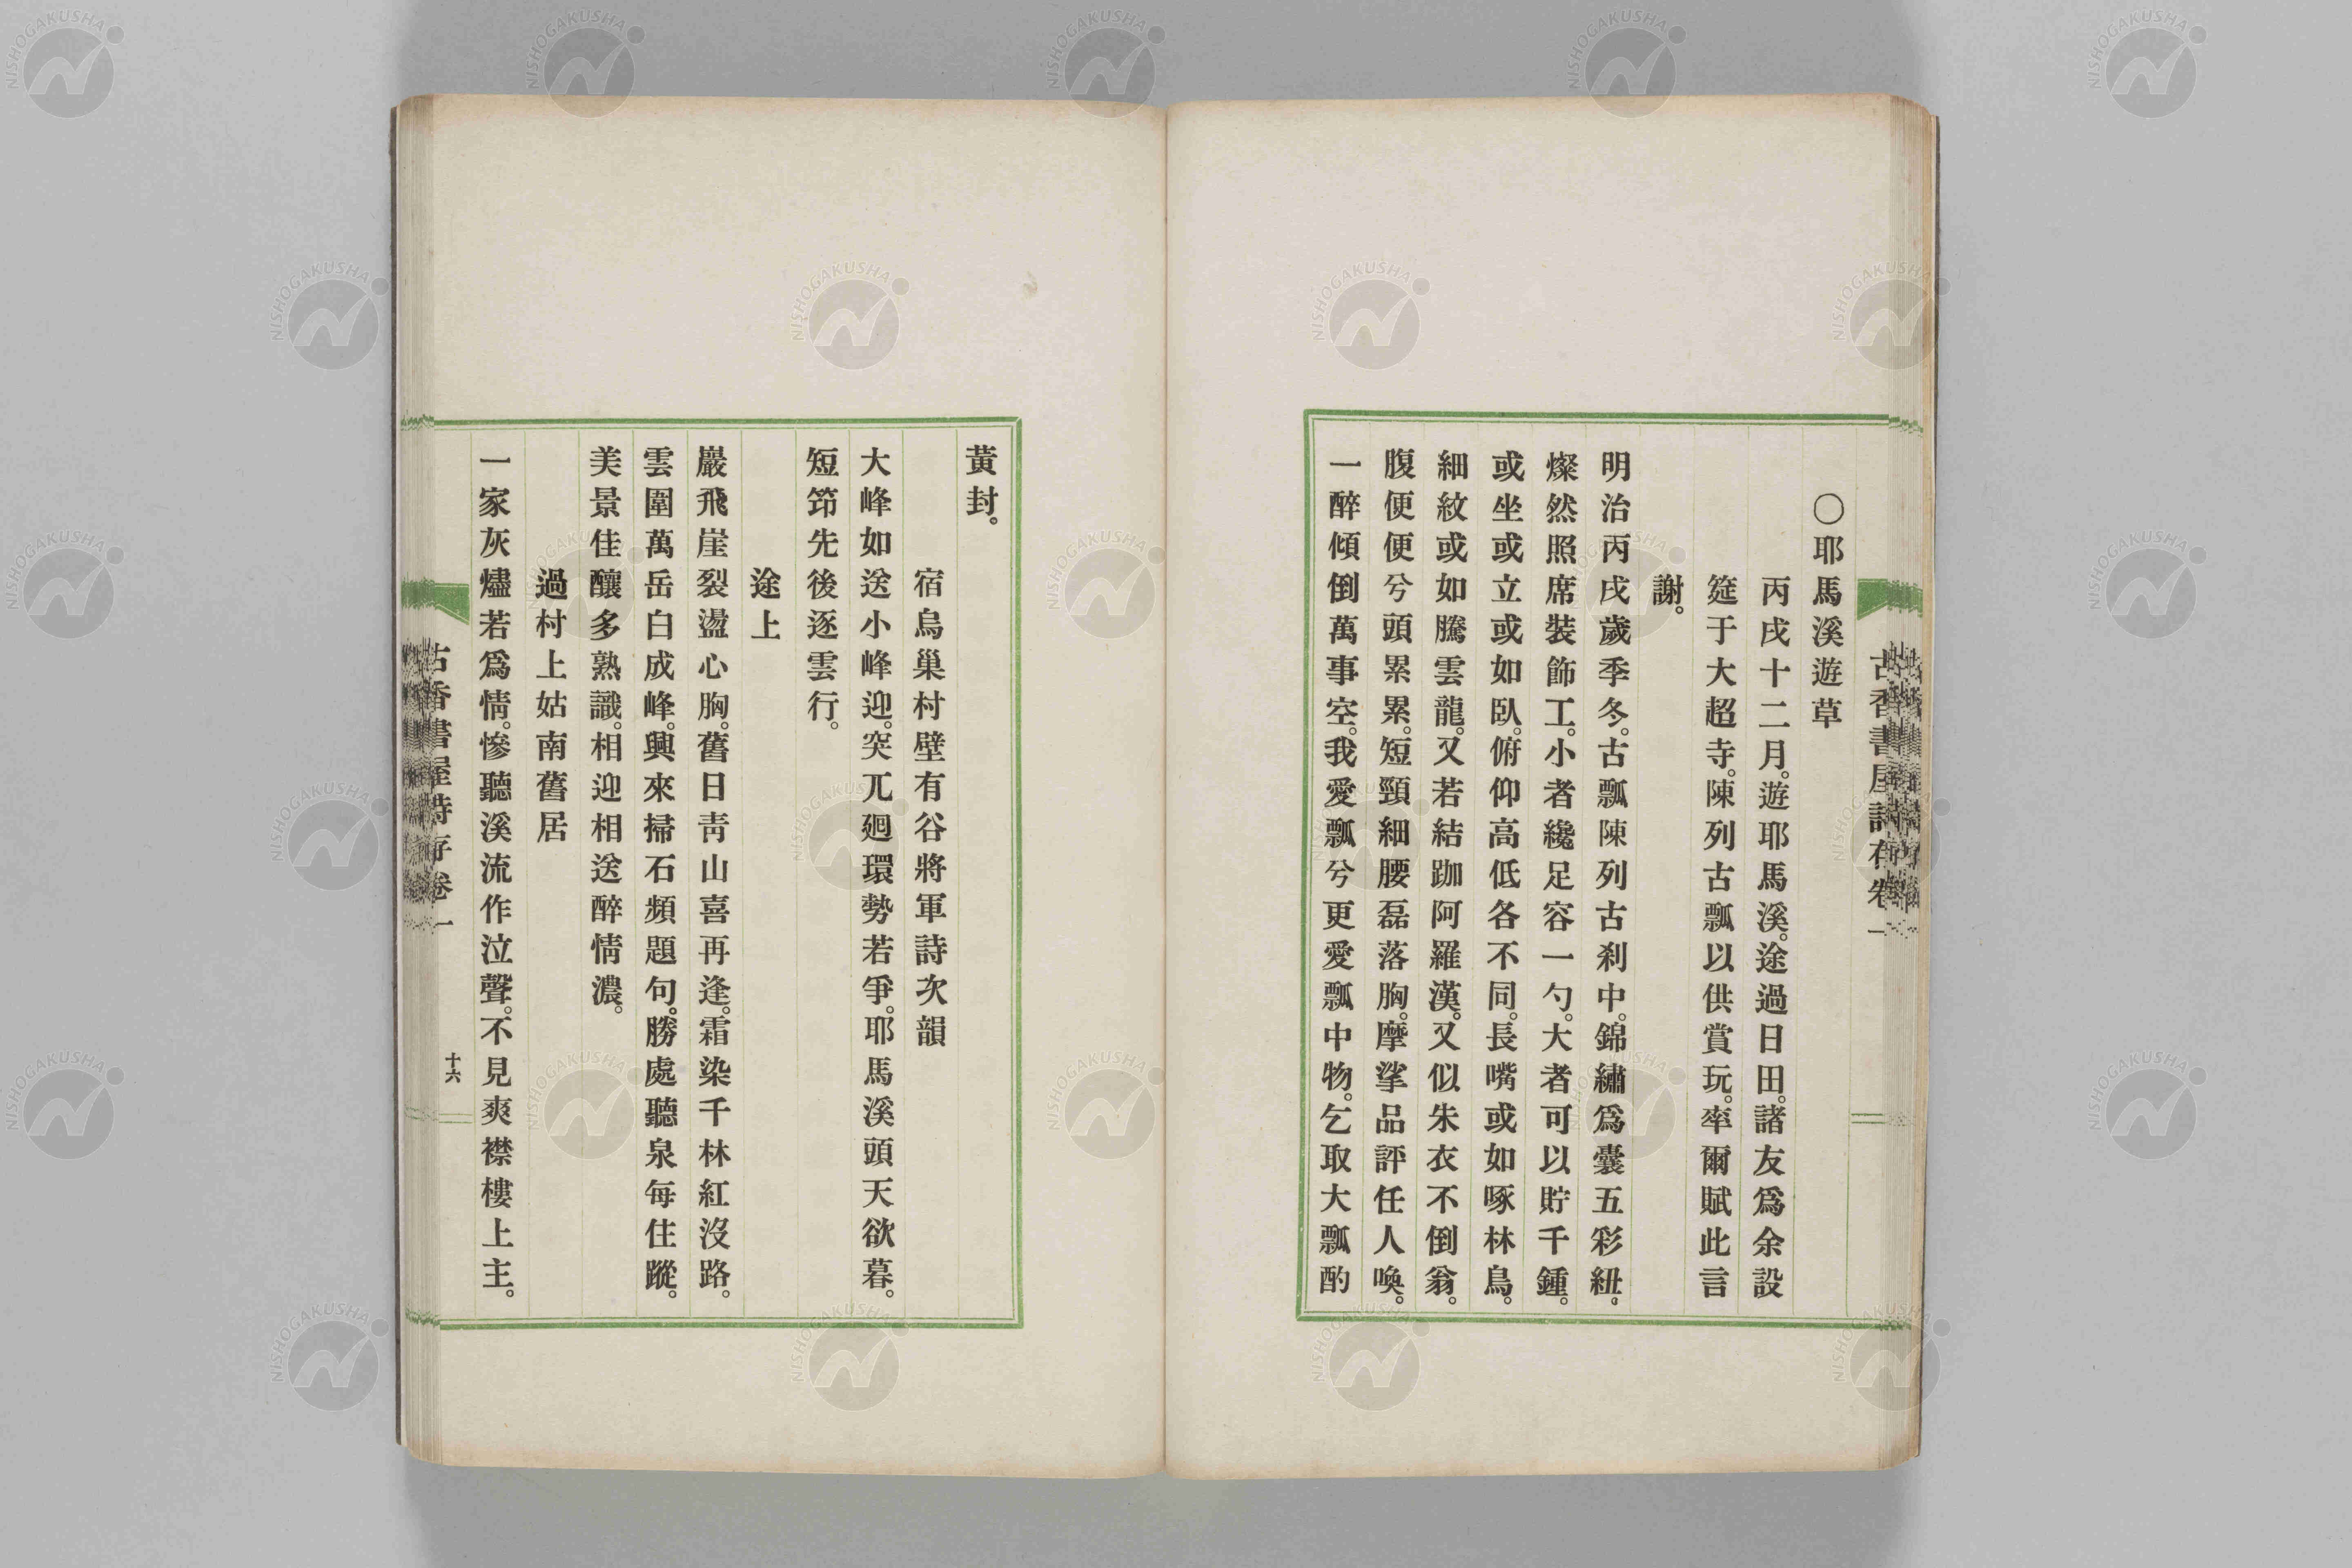 〇耶馬溪遊草
丙戌十二月。遊耶馬溪。途過日田。諸友爲余設
筵于大超寺。陳列古瓢以供賞玩。率爾賦此言
謝。
明治丙戌歲季冬。古瓢陳列古刹中。錦繡爲囊五彩紐。
燦然照席裝飾工。小者纔足容一勺。大者可以貯千鍾。
或坐或立或如臥。俯仰高低各不同。長嘴或如啄林鳥。
細紋或如騰雲龍。又若結跏阿羅漢。又似朱衣不倒翁。
腹便便兮頭累累。短頸細腰磊落胸。摩挲品評任人喚。
一醉傾倒萬事空。我愛瓢兮更愛瓢中物。乞取大瓢酌
黃封。
宿鳥巢村壁有谷將軍詩次韻
大峰如送小峰迎。突兀廻環勢若爭。耶馬溪頭天欲暮。
短筇先後逐雲行。
途上
巖飛崖裂盪心胸。舊日靑山喜再逢。霜染千林紅沒路。
雲圍萬岳白成峰。興來掃石頻題句。勝處聽泉每住蹤。
美景佳釀多熟識。相迎相送醉情濃。
過村上姑南舊居
一家灰燼若爲情。慘聽溪流作泣聲。不見爽襟樓上主。
古香書屋詩存卷一
十六
NISHOGAKUSHA